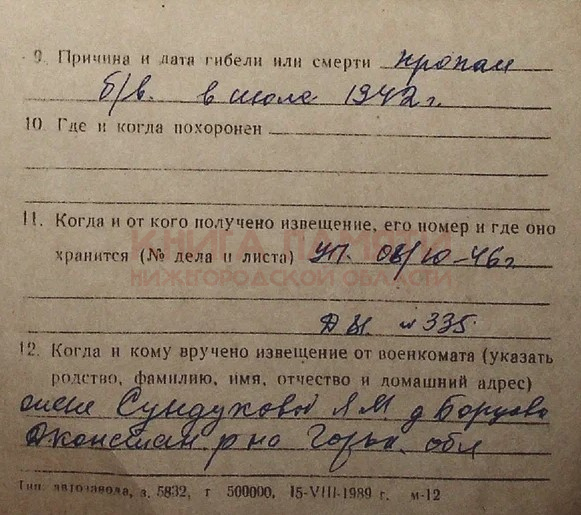 9. Причина и дата гибели или смерти пропал
б/в. в июле 1942 г.
10. Где и когда похоронен
11. Когда и от кого получено извещение, его номер и где оно
КНИГА ПАМЯТИ
хранится (№ дела и листа) УП. 08/10-46 г.
НИЖЕГОРОДСКОЙ ОБЛАСТИ
л 335.
12. Когда и кому вручено извещение от военкомата (указать
родство, фамилию, имя, отчество и домашний адрес)
жене Сундуковой Я М. д Борцово
Дконстан р но Горьк. обл
Тип. автозавода, з. 5832, т 500000, 15-VIII-1989 г. м-12